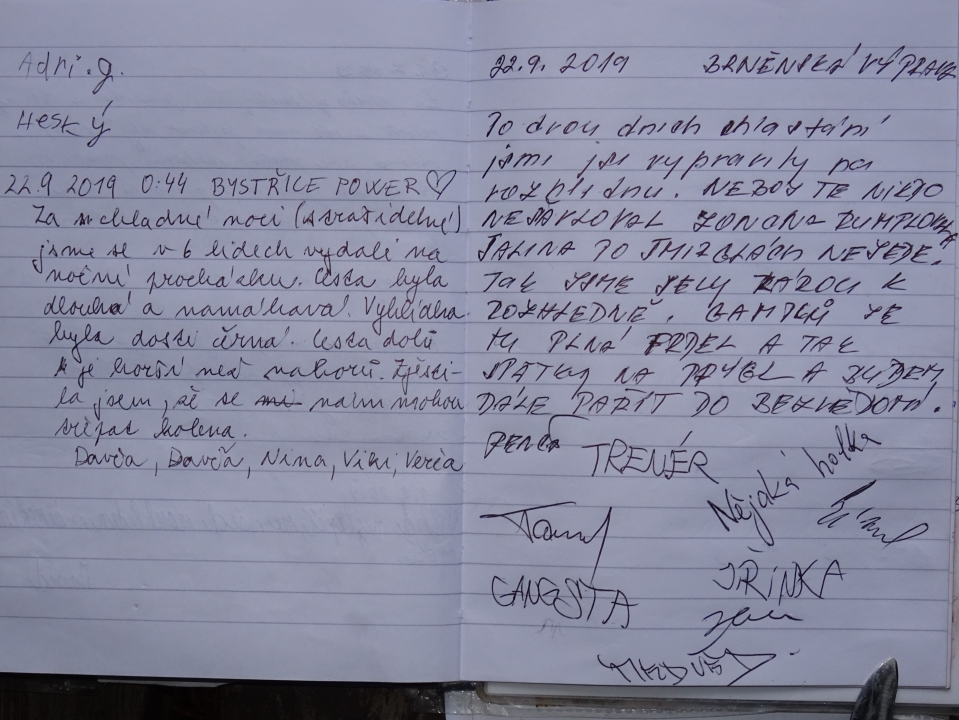 Adri.g.
Heský
22.9 2019 0:44 BYSTŘICE POWER ♡
Za chladné noci (a strašidelné)
jsme se v 6 lidech vydali na
noční procházku. Cesta byla
dlouhá a namáhavá! Vyhlídka
byla dosti černá. Cesta dolů
je horší než nahoru. Zjisti-
la jsem, že se nám mohou
třepat kolena.
Davča, Davča, Nina, Viki, Verča
22.9. 2019 BRNĚNSKÁ VÝPRAVA
Po dvou dnech chlastání
jsmi jsi vypravily na
rozhlednu. NEBOŤ TE NIKDO
TO NEJEDE.
TAK JSME JELY K
ROZHLEDNĚ. JE
TU PLNÁ PRDEL A TAK
SPÁTKY NA A BUDEM
DÁLE PAŘIT DO BEZVĚDOMÍ.
TRENÉR
Nějaká holka
GANGSTA
JIŘINKA
MEDVĚD